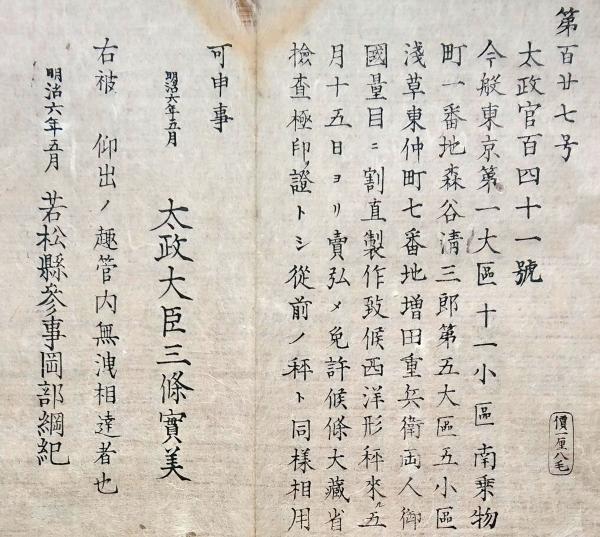 第百廿七号
太政官百四十一號
今般東京第一大區十一小區南乗物
町一番地森谷清三郎第五大區五小區
淺草東仲町七番地増田重兵衛両人御
國量目ニ割直製作致候西洋形秤来ル五
月十五日ヨリ賣弘メ免許候條大藏省
檢査極印ノ證トシ從前ノ秤ト同様相用
可申事
明治六年五月
太政大臣三條實美
右被 仰出ノ趣管内無洩相達者也
明治六年五月 若松縣參事岡部綱紀
價一厘八毛